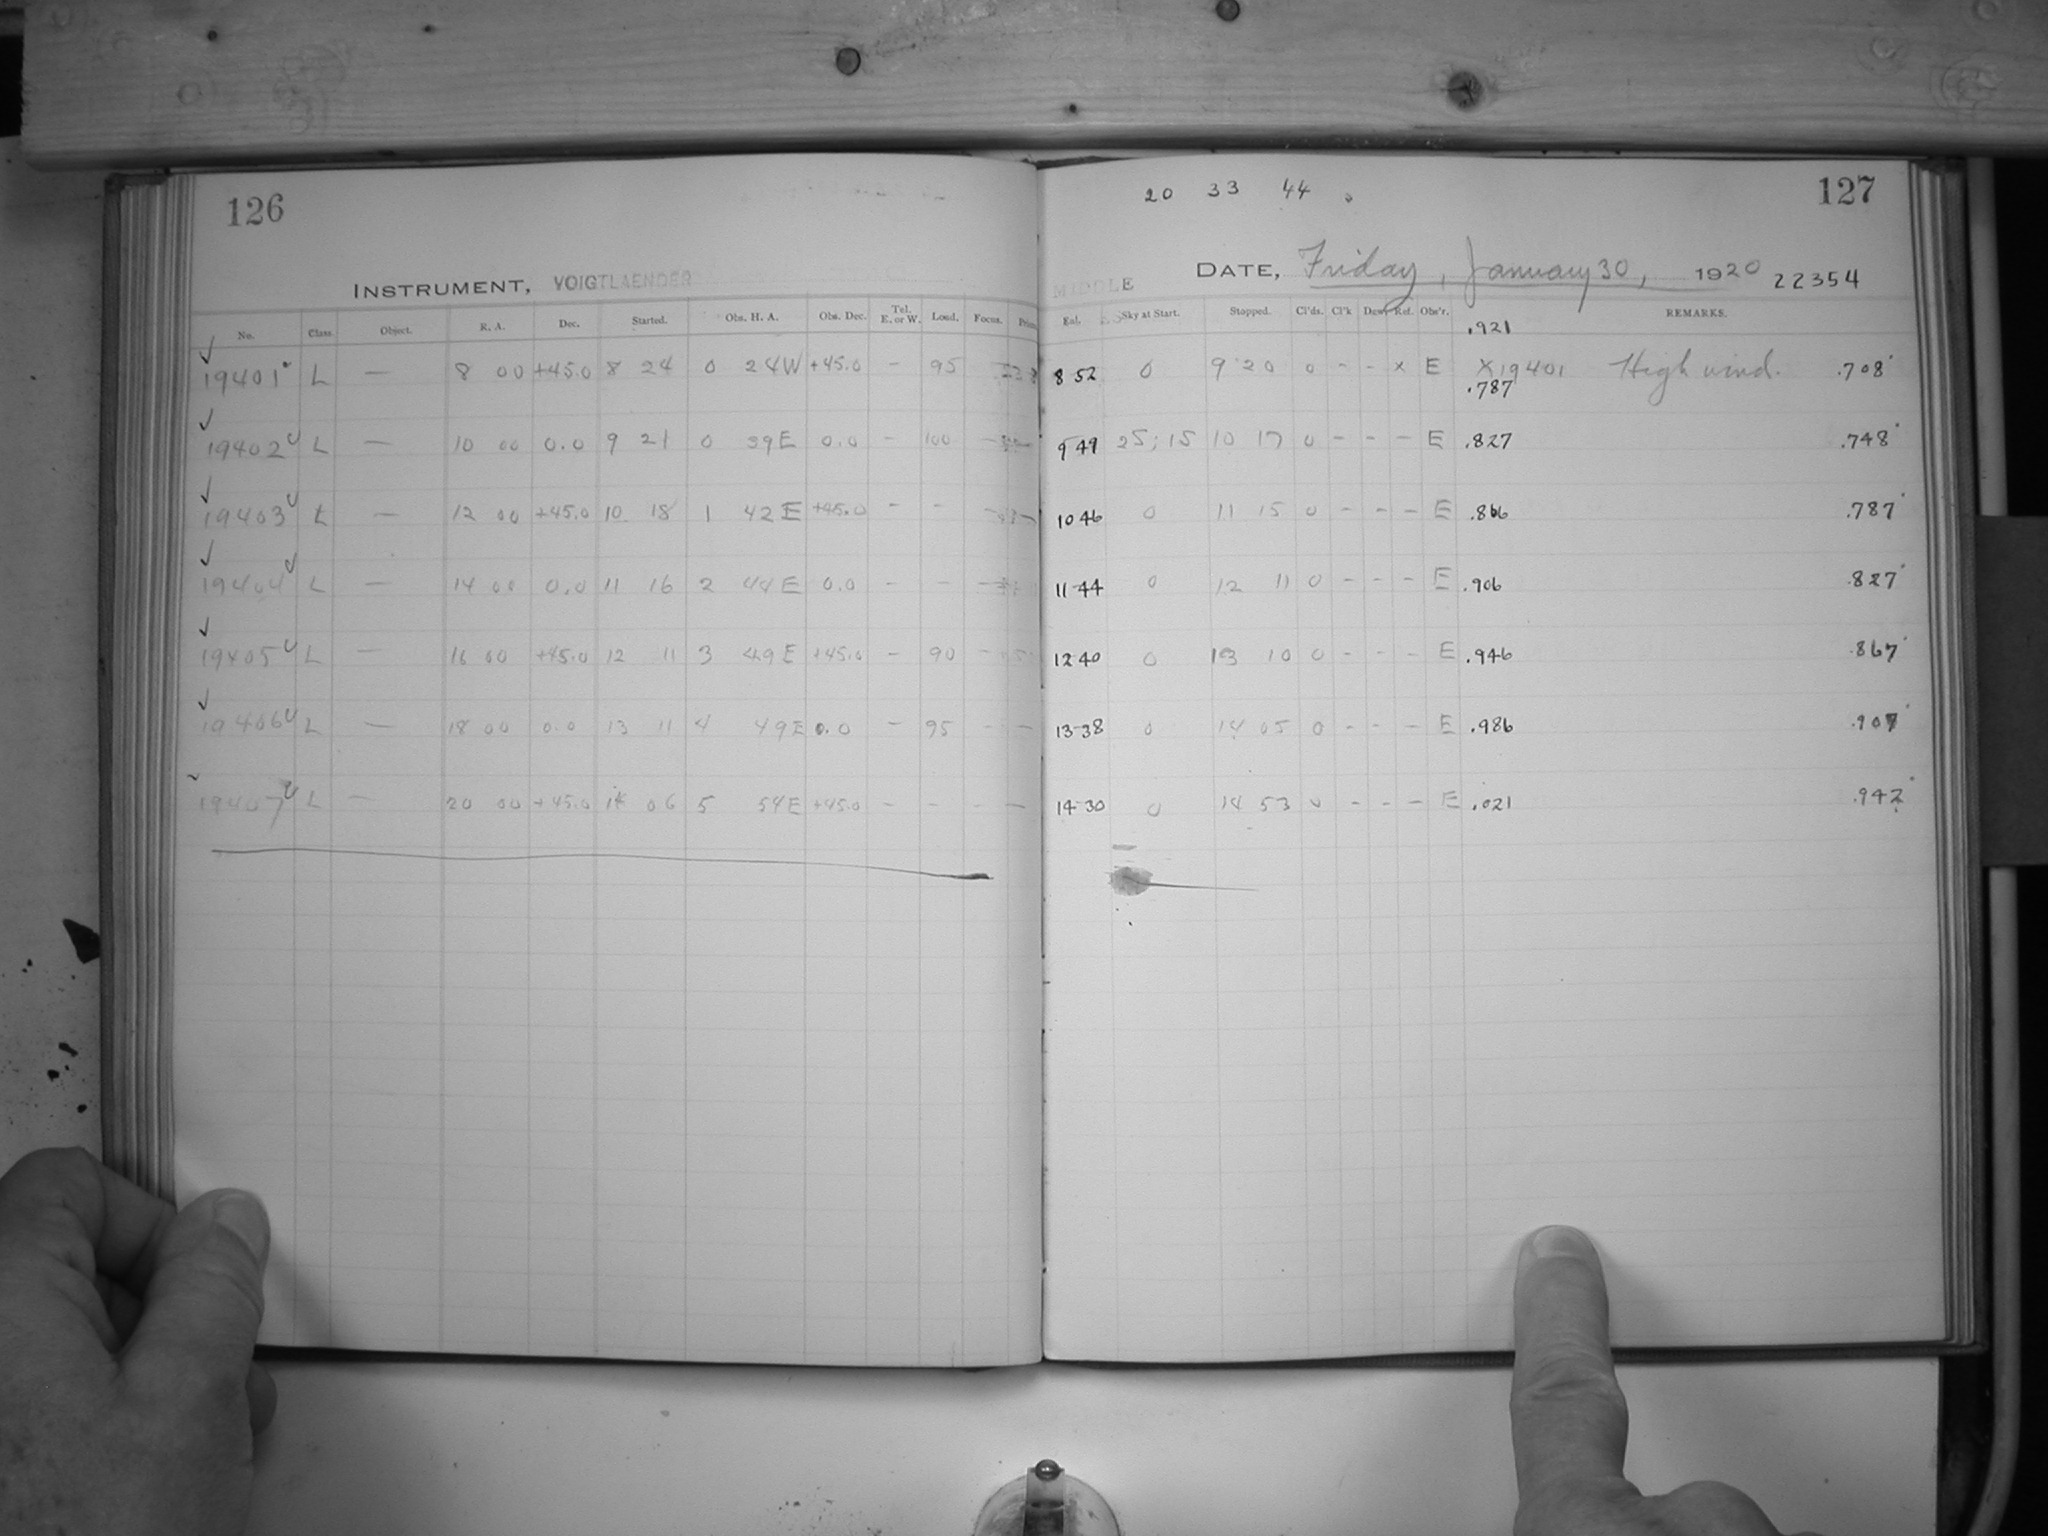 126
INSTRUMENT, VOIGTLAENDER
No. Class. Object. R. A. Dec. Started. Obs. H. A. Obs. Dec. Tel. E. or W. Loud. Focus.
19401 L — 8 00 +45.0 8 24 0 24W +45.0 - 95
19402 L — 10 00 0.0 9 21 0 39E 0.0 - 100
19403 L — 12 00 +45.0 10 18 1 42E +45.0 - -
19404 L — 14 00 0.0 11 16 2 44E 0.0 - -
19405 L — 16 00 +45.0 12 11 3 49E +45.0 - 90
19406 L — 18 00 0.0 13 11 4 49E 0.0 - 95
19407 L — 20 00 +45.0 14 06 5 54E +45.0 - - - -
20 33 44
127
MIDDLE
DATE, Friday, January 30, 1920 22354
Sky at Start. Stopped. Cl'ds. Cl'k Dew Ref. Obs'r. REMARKS.
.921
8 52 0 9 20 0 - - x E X19401 High wind. .708
.787
9 49 25; 15 10 17 0 - - - E .827 .748
10 46 0 11 15 0 - - - E .866 .787
11-44 0 12 11 0 - - - E .906 .827
12-40 0 13 10 0 - - - E .946 .867
13-38 0 14 05 0 - - - E .986 .907
14-30 0 14 53 0 - - - E .021 .942